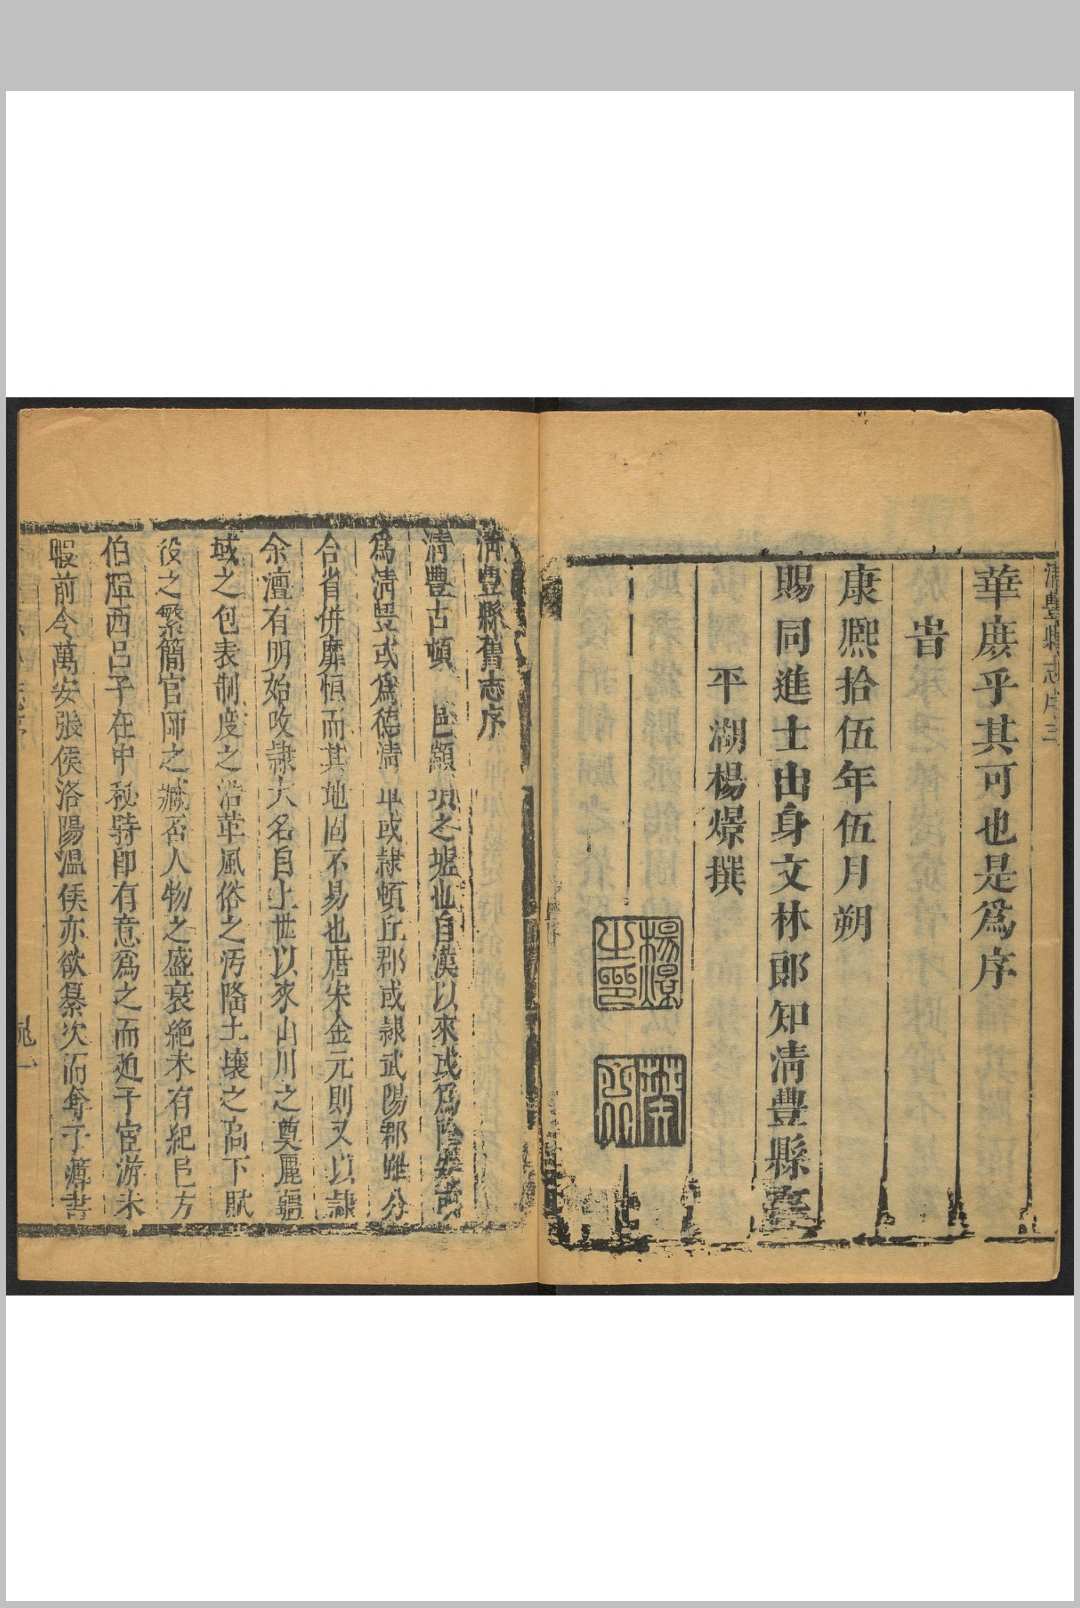 華庶乎其可也是爲序
旹
康熙拾伍年伍月朔
賜同進士出身文林郎知清豐縣事
平湖楊燝撰
清豐縣志序
清豐縣舊志序
清豐古頓 邑顓頊之墟也自漢以來或爲陰安或
爲清豐或爲德清軍或隸頓丘郡或隸武陽郡雖分
合省併靡恒而其地固不易也唐宋金元則又以隸
余澶有明始改隸大名自上世以來山川之奠麗疆
域之包表制度之沿革風俗之汚隆土壤之高下賦
役之繁簡官師之臧否人物之盛衰絶未有紀邑方
伯 西呂子在中秘時即有意爲之而廼于宦游未
暇前令萬安張侯洛陽温侯亦欲纂次而奪于薄書